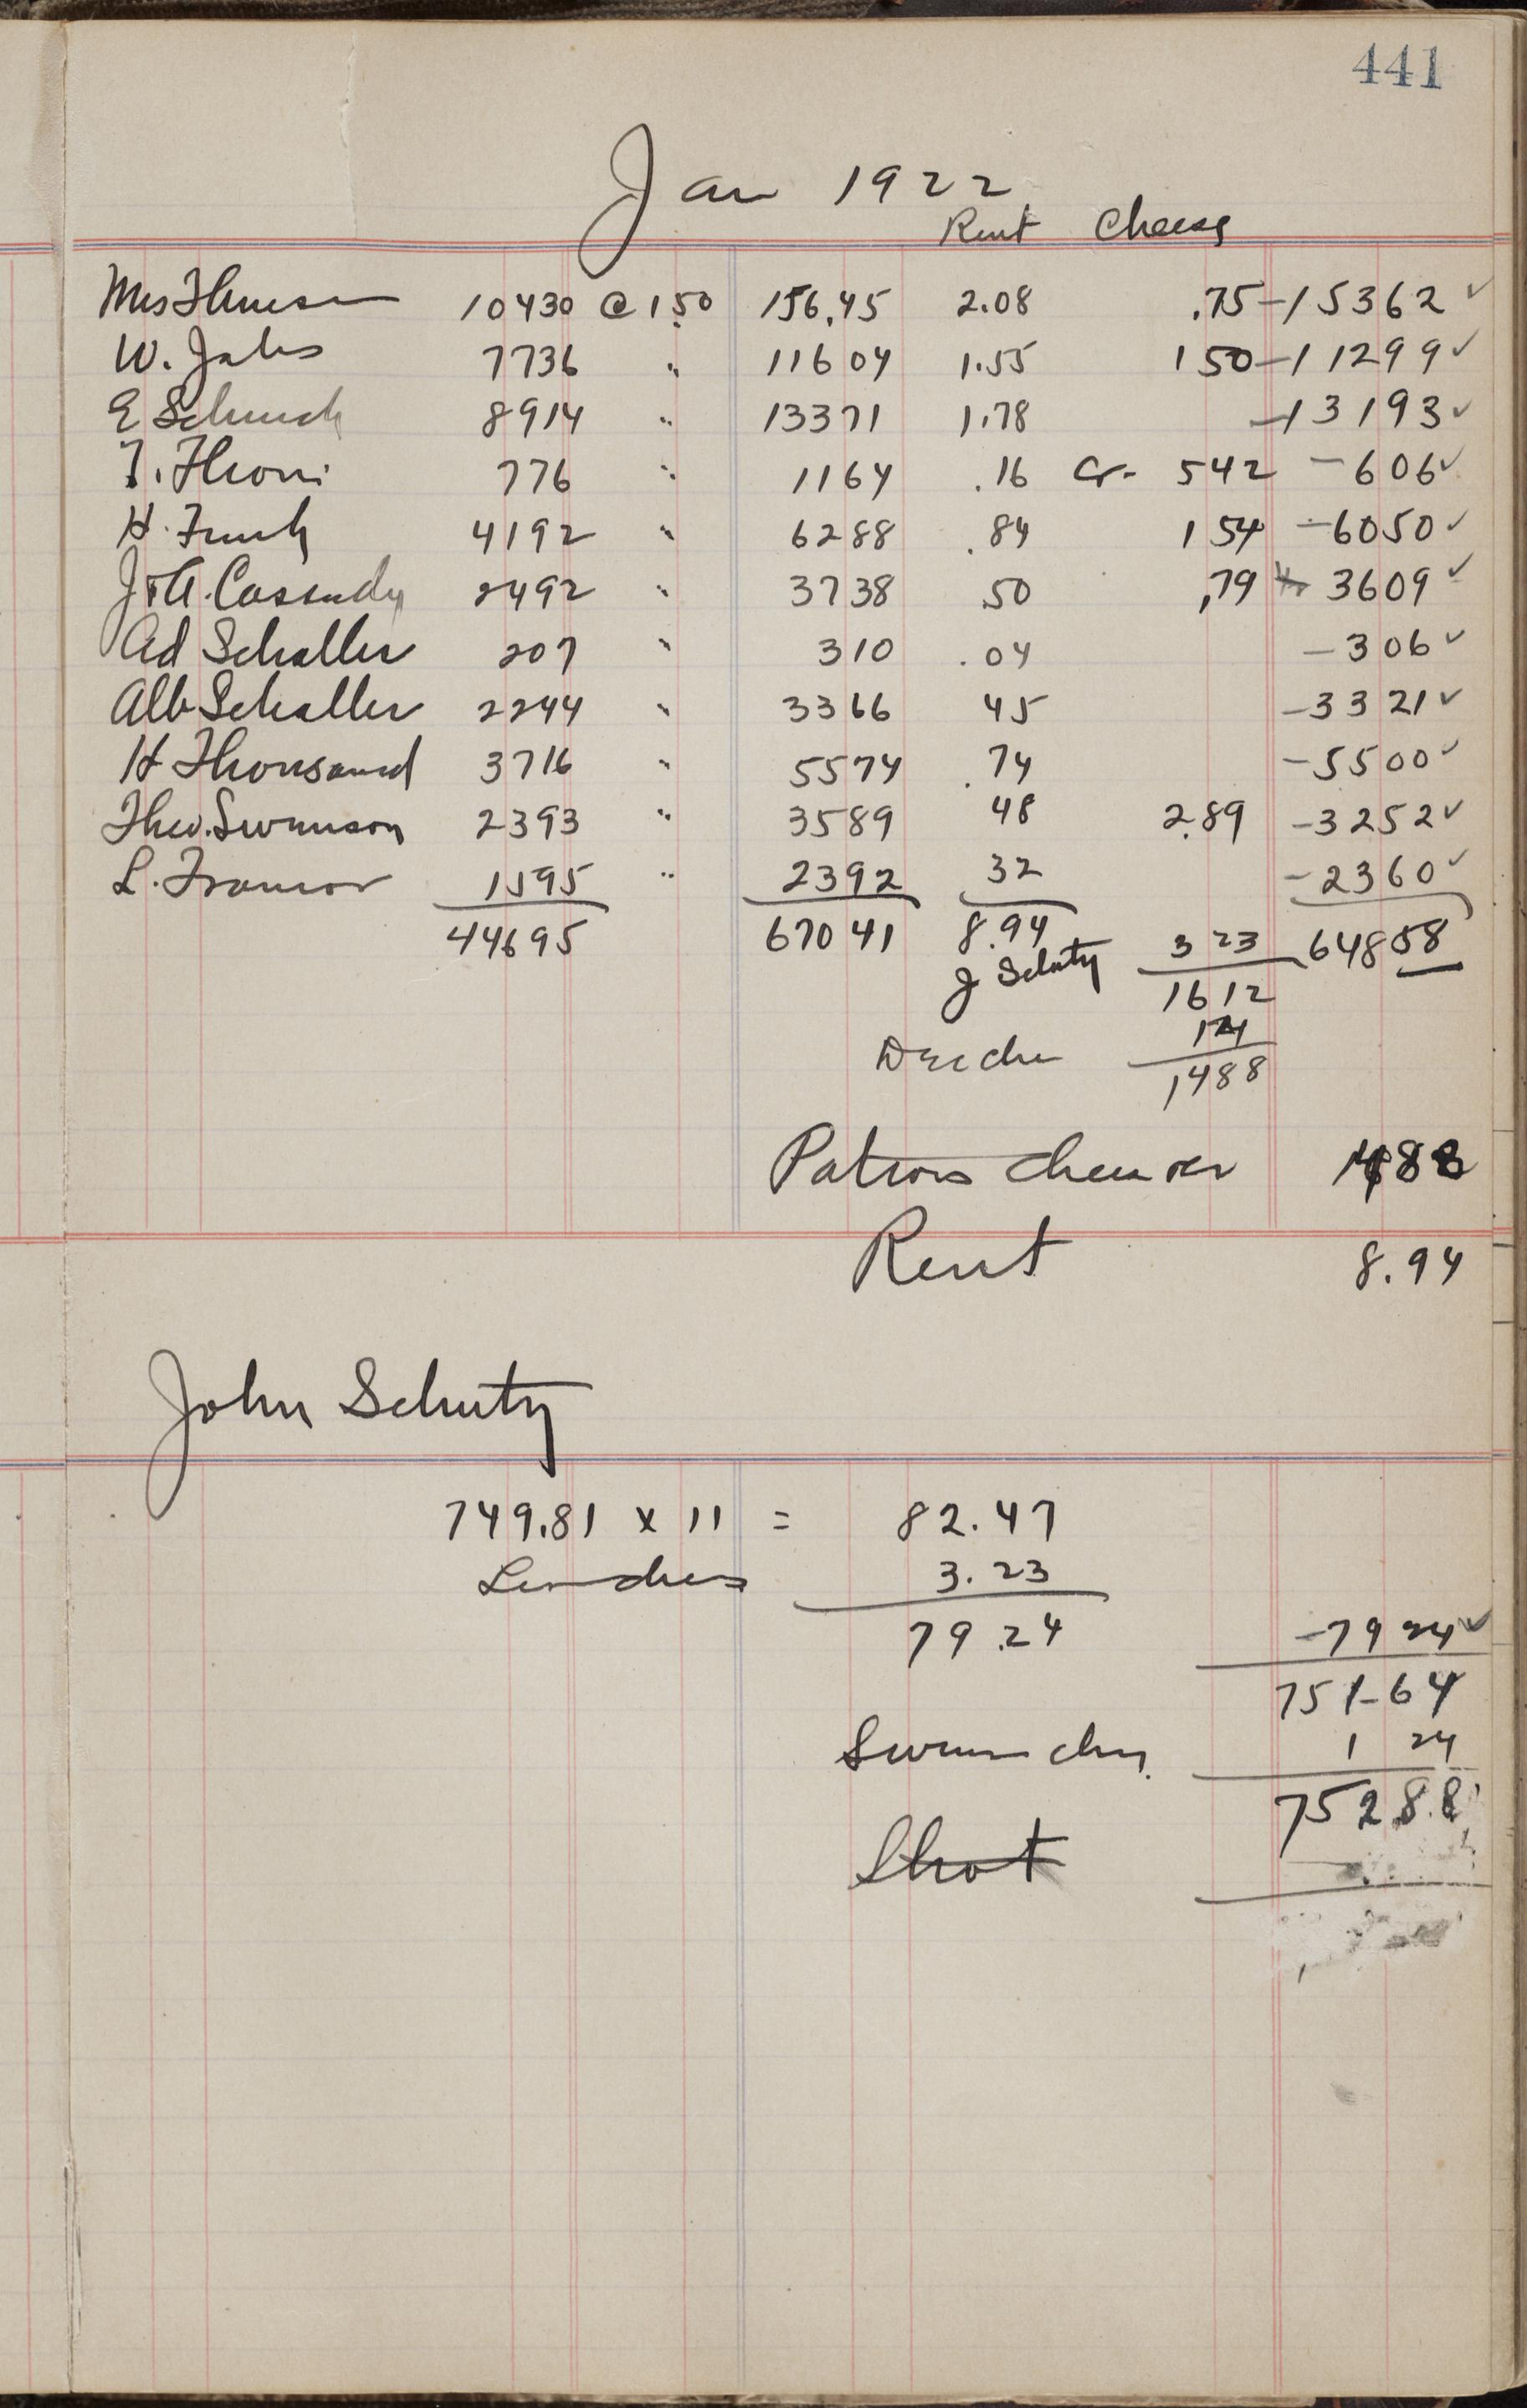 441
Jan 1922
Rent Cheese
Mrs 10430 @ 1.50 156.45 2.08 .75 - 15362 ✓
W. 7736 " 11604 1.55 150 - 11299 ✓
E 8914 " 13371 1.78 - 13193 ✓
776 " 1164 .16 Cr- 542 - 606 ✓
H. 4192 " 6288 .84 154 - 6050 ✓
2492 " 3738 .50 .79 3609 ✓
Ad Schaller 207 " 310 .04 - 306 ✓
Alb Schaller 2244 " 3366 45 - 3321 ✓
H Thousand 3716 " 5574 .74 - 5500 ✓
Theo. Swenson 2393 " 3589 48 2.89 - 3252 ✓
L. 1595 " 2392 32 - 2360 ✓
44695 67041 8.94
J Schutz 323 64858
1612
124
1488
Patrons 1488
Rent 8.94
John Schutz
749.81 x 11 = 82.47
3.23
79.24 - 79 24 ✓
751-64
1 24
752 88
Short